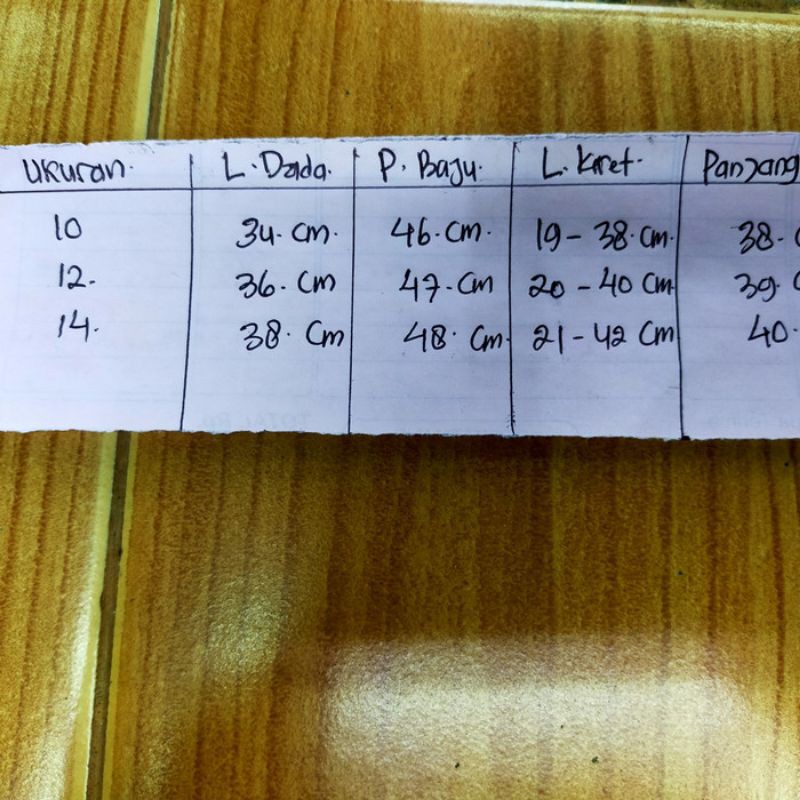 Ukuran. L. Dada. P. Baju. L. Karet. Panjang
10 34. cm. 46. cm. 19 - 38. cm. 38.
12. 36. cm 47. cm 20 - 40 cm 39.
14. 38. cm 48. cm. 21 - 42 cm 40.